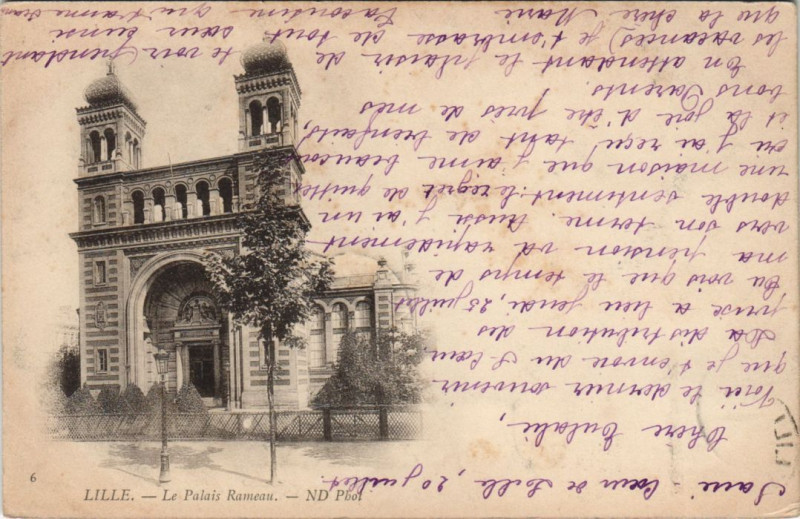 Sacré-Cœur de Lille, 20 juillet
Chère Eulalie,
Voici le dernier souvenir
que je t'envoie du S. Cœur
La distribution des
prix a lieu jeudi, 25 juillet
Tu vois que le temps de
ma pension va rapidement
vers son terme. Aussi j'ai un
double sentiment: le regret de quitter
une maison que j'aime beaucoup
où j'ai reçu tant de bienfaits,
et la joie d'être près de mes
bons Parents.
En attendant le plaisir de
te voir (pendant
les vacances) je t'embrasse de tout cœur ainsi
que la chère Marie
Ta cousine qui t'aime
6
LILLE. — Le Palais Rameau. — ND Phot
LILL